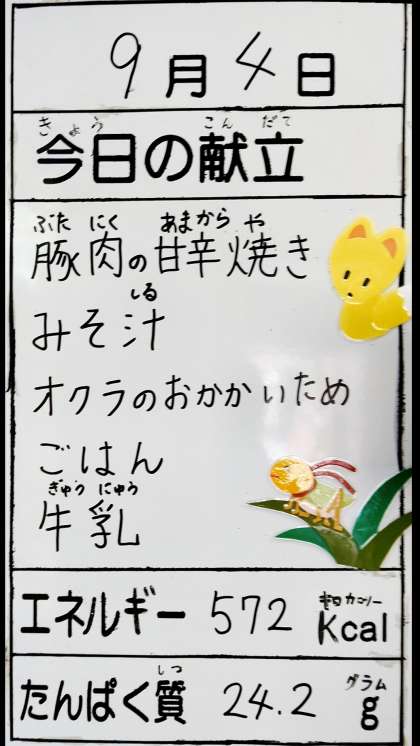 9月4日
きょう こんだて
今日の献立
ぶた にく あまから や
豚肉の甘辛焼き
しる
みそ汁
オクラのおかかいため
ごはん
ぎゅう にゅう
牛乳
キロカロリー
エネルギー 572 Kcal
しつ グラム
たんぱく質 24.2 g